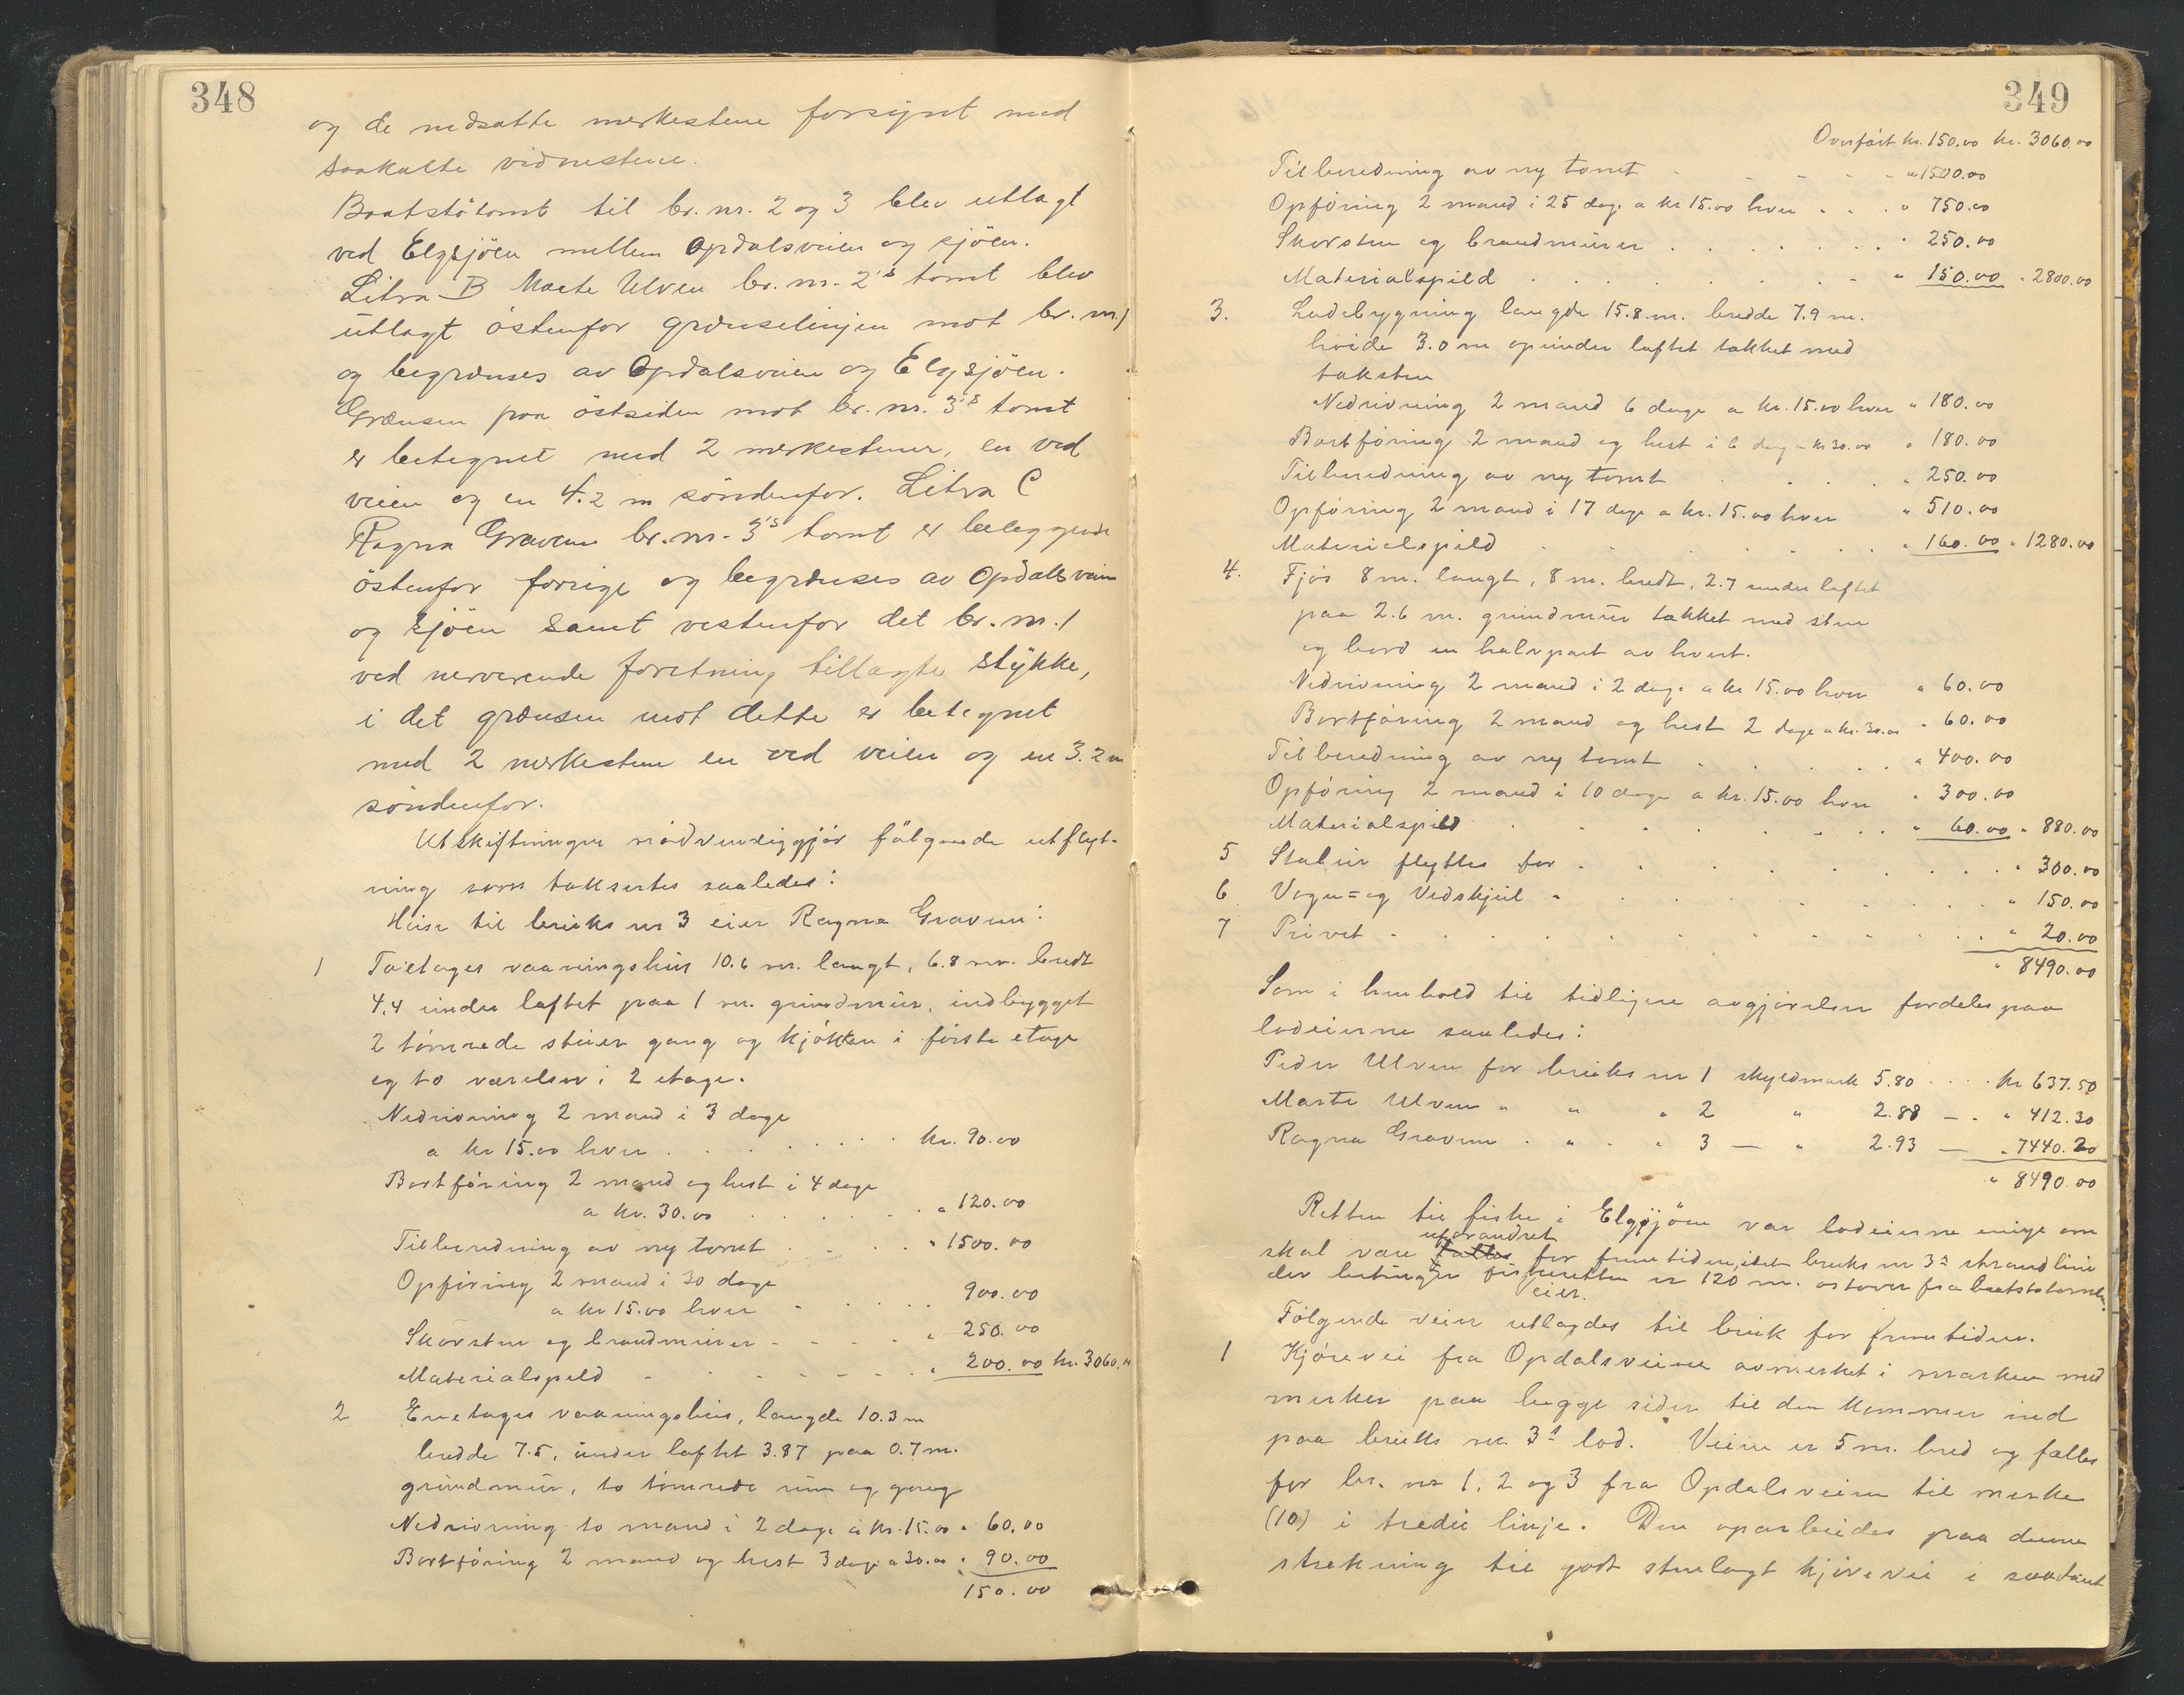 348
og de nedsatte merkestene forsynet med
saakalte vidnestene.
Baatstötomt til br. nr. 2 og 3 blev utlagt
ved Elgsjöen mellem Opdalsveien og sjöen.
Litra B Marte Ulven br. nr. 2's tomt blev
utlagt östenfor grænselinjen mot br. nr. 1
og begrænses av Opdalsveien og Elgsjöen.
Grænsen paa östsiden mot br. nr. 3's tomt
er betegnet med 2 merkestener, en ved
veien og en 4.2 m söndenfor. Litra C
Ragna Graven br. nr. 3's tomt er beleggende
östenfor forrige og begrænses av Opdalsveien
og sjöen samt vestenfor det br. nr. 1
ved nerverende foretning tillagte stykke,
i det grænsen mot dette er betegnet
med 2 merkestene en ved veien og en 3.2 m
söndenfor.
Utskiftningen nödvendiggjör fölgende utflyt-
ning som taksertes saaledes:
Huse til bruks nr 3 eier Ragna Graven:
1 To etages vaaningshus 10.6 m. langt, 6.8 m. bredt
4.4 under loftet paa 1 m. grundmur, indbygget
2 tömrede stuer gang og kjökken i förste etage
og to værelser i 2 etage.
Nedrivning 2 mand i 3 dage
a kr 15.00 hver . . . . . . kr. 90.00
Bortföring 2 mand og hest i 4 dage
a kr. 30.00 . . . . . . " 120.00
Tilberedning av ny tomt . . . . " 1500.00
Opföring 2 mand i 30 dage
a kr 15.00 hver - . . . . 900.00
Skorsten og brandmurer - - - . " 250.00
Materialspild - - - - - . . " 200.00 kr. 3060.00
2 En etages vaaningshus, længde 10.3 m
bredde 7.5, under loftet 3.87 paa 0.7 m.
grundmur, to tömrede rum og gang
Nedrivning to mand i 2 dage a kr. 15.00 " 60.00
Bortföring 2 mand og hest 3 dage a 30.00 " 90.00
150.00
349
Overfört kr. 150.00 kr. 3060.00
Tilberedning av ny tomt - - - - - " 1500.00
Opföring 2 mand i 25 dage a kr 15.00 hver . . . " 750.00
Skorsten og brandmurer . . . . . . . " 250.00
Materialspild . . . . . . . - " 150.00 " 2800.00
3. Ladebygning længde 15.8 m. bredde 7.9 m.
höide 3.0 m opunder loftet tækket med
taksten
Nedrivning 2 mand 6 dage a kr. 15.00 hver " 180.00
Bortföring 2 mand og hest i 6 dag a kr 30.00 " 180.00
Tilberedning av ny tomt . . . . " 250.00
Opföring 2 mand i 17 dage a kr. 15.00 hver " 510.00
Materialspild . . . . . . . " 160.00 " 1280.00
4. Fjös 8 m. langt, 8 m. bredt, 2.7 under loftet
paa 2.6 m. grundmur tækket med sten
og bord en halvpart av hvert.
Nedrivning 2 mand i 2 dage a kr 15.00 hver " 60.00
Bortföring 2 mand og hest 2 dage a kr. 30.00 " 60.00
Tilberedning av ny tomt . . . . . " 400.00
Opföring 2 mand i 10 dage a kr. 15.00 hver " 300.00
Materialspild . . . . . . . " 60.00 " 880.00
5 Stabur flyttes for . . . . . . . . " 300.00
6 Vogn= og Vedskjul " . . . . . . " 150.00
7 Privet - . . . . . . . . . " 20.00
" 8490.00
Som i henhold til tidligere avgjörelse fordeles paa
lodeierne saaledes:
Peder Ulven for bruks nr 1 skyldmark 5.80 . . . . kr 637.50
Marte Ulven " " " 2 " 2.88 — . " 412.30
Ragna Graven . " . " 3 — " 2.93 — " 7440.20
" 8490.00
Retten til fiske i Elgsjöen var lodeierne enige om
uforandret
skal være fælles for fremtiden, idet bruks nr 3's strandlinie
der betinger fiskeretten er 120 m. östover fra baatstötomten.
eier.
Fölgende veier utlagdes til bruk for fremtiden.
1 Kjörevei fra Opdalsveien avmerket i marken med
merker paa begge sider til den kommer ind
paa bruks nr. 3's lod. Veien er 5 m. bred og fælles
for br. nr 1, 2 og 3 fra Opdalsveien til merke
(10) i tredie linje. Den oparbeides paa denne
strekning til godt stenlagt kjörevei i saadant